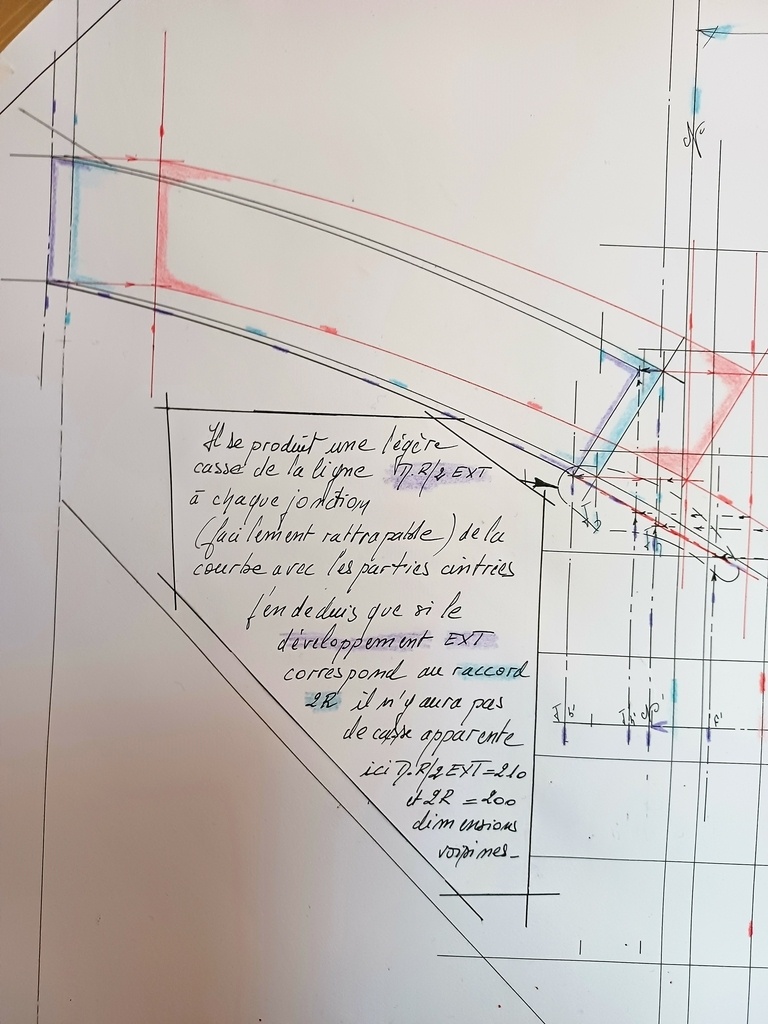 Il se produit une légère
casse de la ligne π.R/2 EXT
à chaque jonction
(facilement rattrapable) de la
courbe avec les parties cintrées
J'en déduis que si le
développement EXT
correspond au raccord
2R il n'y aura pas
de casse apparente
ici π.R/2 EXT = 210
et 2R = 200
dimensions
voisines_
b'